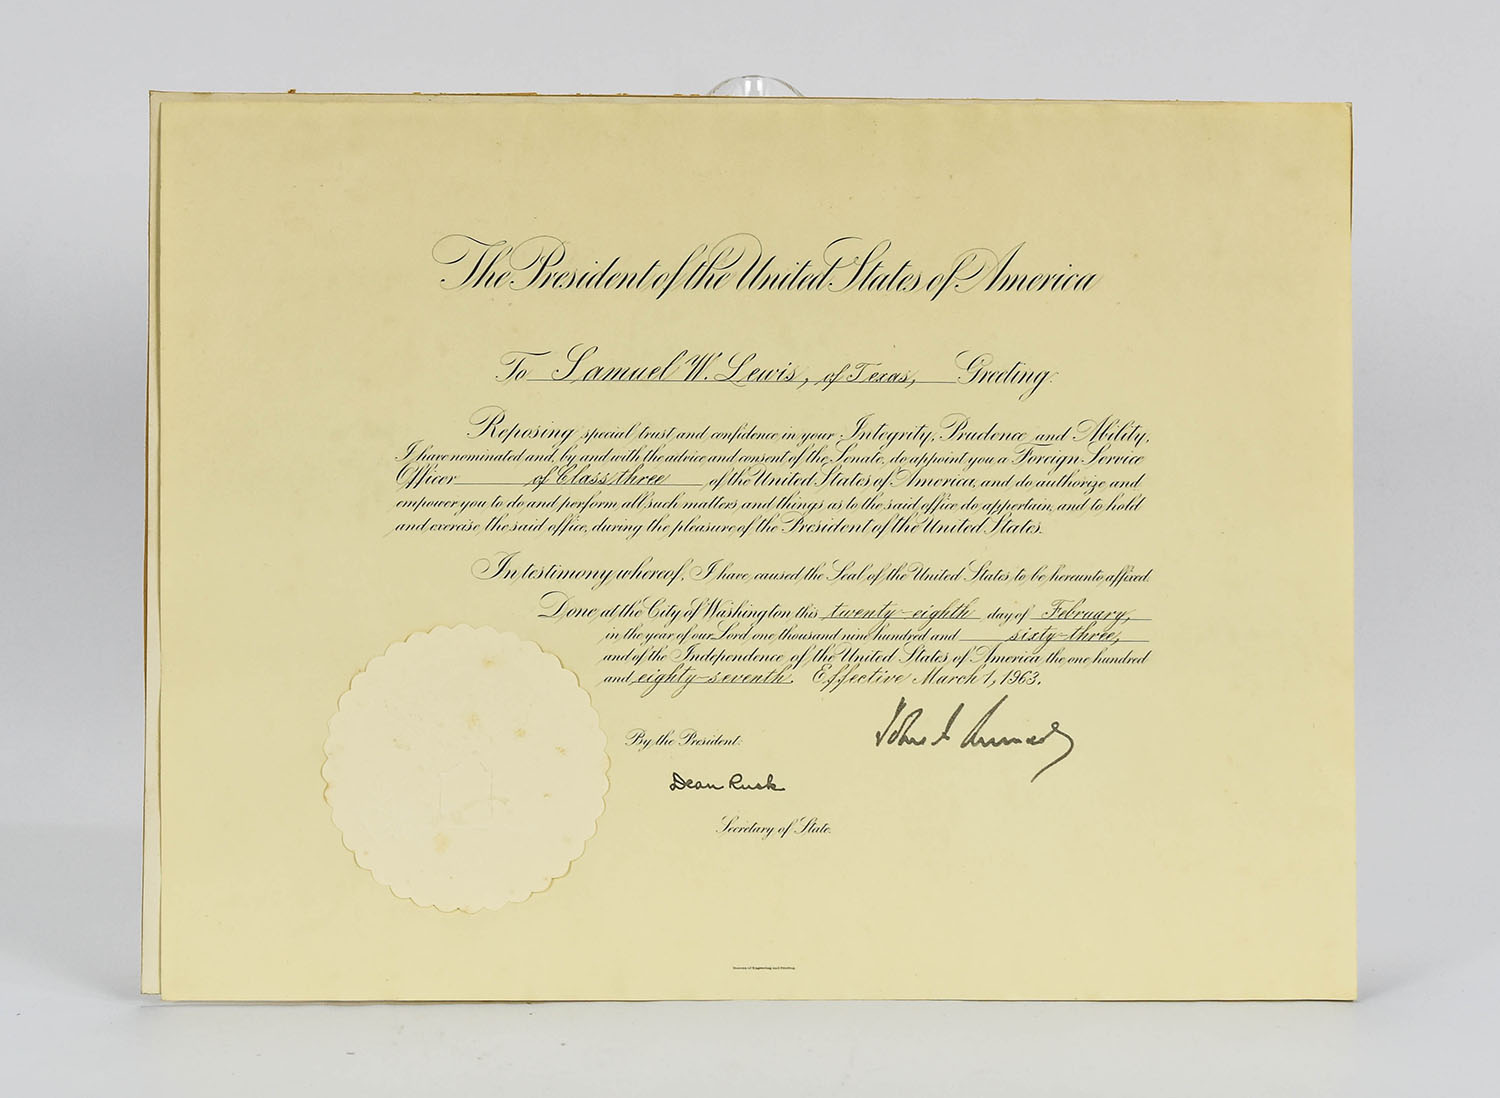 The President of the United States of America
To Samuel W. Lewis, of Texas, Greeting:
Reposing special trust and confidence in your Integrity, Prudence and Ability,
I have nominated and, by and with the advice and consent of the Senate, do appoint you a Foreign Service
Officer of Class three of the United States of America, and do authorize and
empower you to do and perform all such matters and things as to the said office do appertain, and to hold
and exercise the said office, during the pleasure of the President of the United States.
In testimony whereof, I have caused the Seal of the United States to be hereunto affixed.
Done at the City of Washington this twenty-eighth day of February,
in the year of our Lord one thousand nine hundred and sixty-three,
and of the Independence of the United States of America the one hundred
and eighty-seventh. Effective March 1, 1963.
By the President:
John F. Kennedy
Dean Rusk
Secretary of State.
Bureau of Engraving and Printing